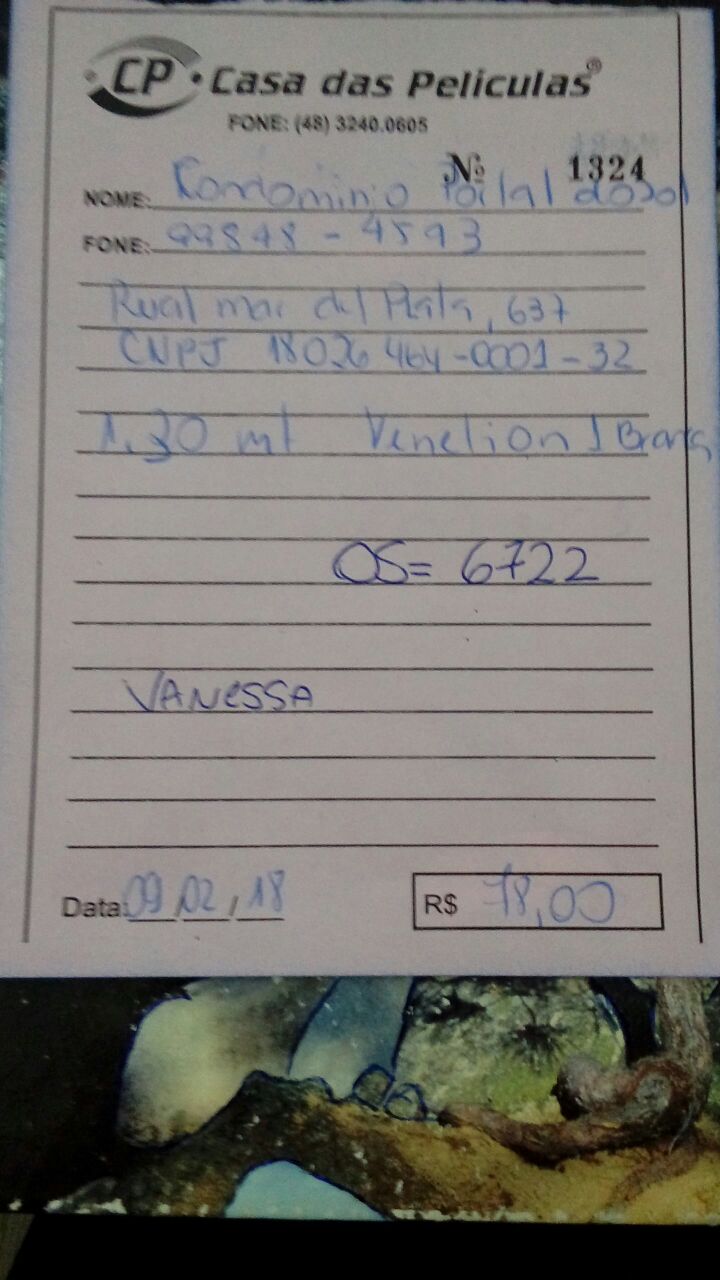 CP • Casa das Películas®
FONE: (48) 3240.0605
Nº 1324
NOME: Condominio Portal do Sol
FONE: 99848-4593
Rua mar del Plata, 637
CNPJ 18026464-0001-32
1.30 mt Branca
OS= 6722
VANESSA
Data: 09/02/18 R$ 78,00